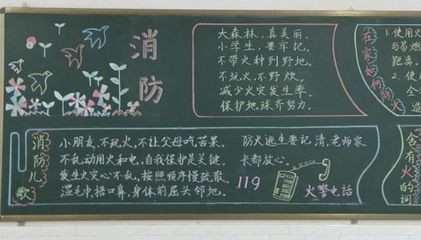 消防
大森林,真美丽。
小学生,要牢记。
不带火种到野地。
不玩火,不野炊。
减少火灾发生率。
保护地球齐努力。
在家如何防火
1.使用火
与易燃
距离。
2.使
全
造
消防儿歌
小朋友,不玩火,不让父母吃苦果。
不乱动用火和电,自我保护是关键。
发生火灾心不乱,按照顺序慢疏散。
湿毛巾捂口鼻,身体前屈头邻地。
防火逃生要记清,老师家
长都放心。
119
火警电话
含有火的词